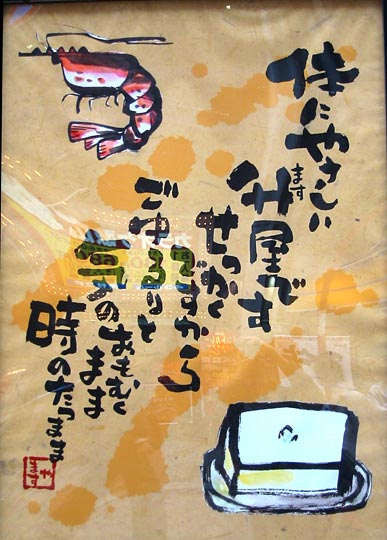 体にやさしい
ます
升屋です
せっかく
ですから
ごゆるりと
気のおもむく
まま
時のたつまま
ますや